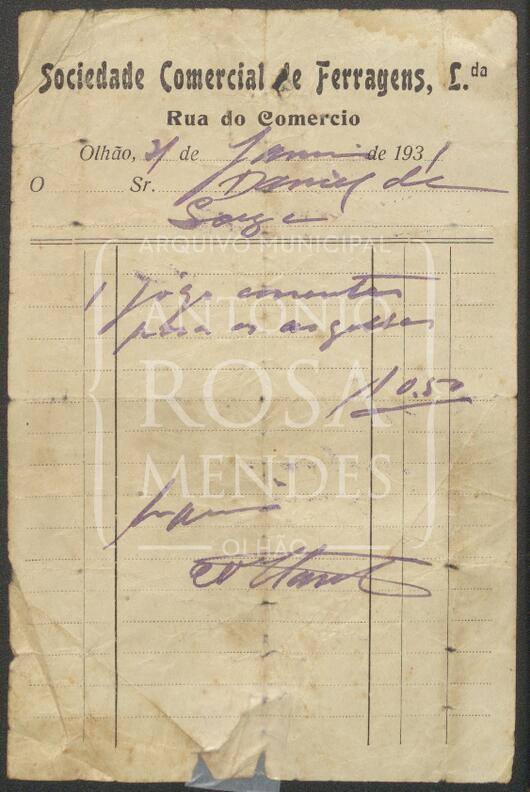 Sociedade Comercial de Ferragens, L.da
Rua do Comercio
Olhão, 31 de Janeiro de 1931
O Sr. Daniel de
Sousa
1 jogo correntes
para as argolas
10.50
ARQUIVO MUNICIPAL
ANTÓNIO
ROSA
MENDES
OLHÃO